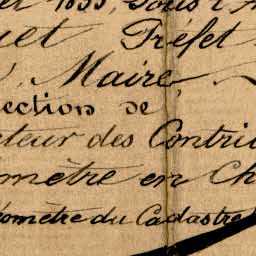 et 1835, sous l'
uet Préfet
Maire,
ection de
cteur des Contri
omètre en Ch
éomètre du Cadastre